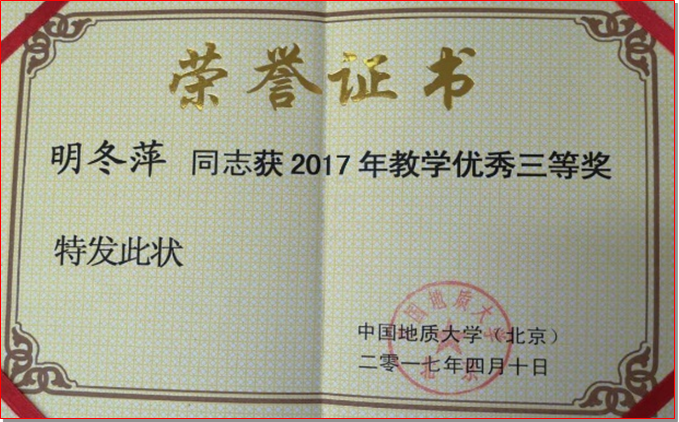 荣誉证书
明冬萍 同志获2017年教学优秀三等奖
特发此状
中国地质大学（北京）
二零一七年四月十日
中国地质大学
北京